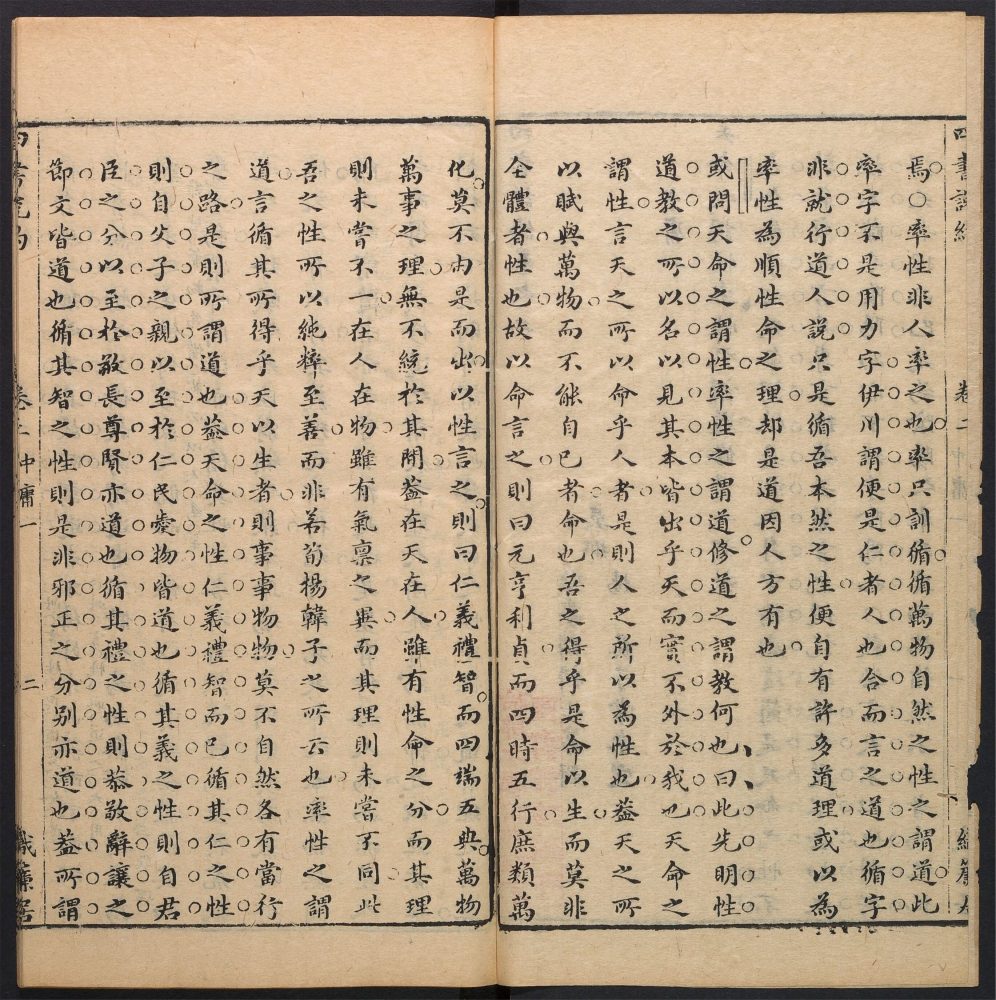 焉○率性非人率之也率只訓循循萬物自然之性之謂道此
率字不是用力字伊川謂便是仁者人也合而言之道也循字
非就行道人說只是循吾本然之性便自有許多道理或以為
率性為順性命之理却是道因人方有也
或問天命之謂性率性之謂道修道之謂教何也曰此先明性
道教之所以名以見其本皆出乎天而實不外於我也天命之
謂性言天之所以命乎人者是則人之所以為性也葢天之所
以賦與萬物而不能自已者命也吾之得乎是命以生而莫非
全體者性也故以命言之則曰元亨利貞而四時五行庶類萬
化莫不由是而出以性言之則曰仁義禮智而四端五典萬物
萬事之理無不統於其間葢在天在人雖有性命之分而其理
則未嘗不一在人在物雖有氣禀之異而其理則未嘗不同此
吾之性所以純粹至善而非若荀揚韓子之所云也率性之謂
道言循其所得乎天以生者則事事物物莫不自然各有當行
之路是則所謂道也葢天命之性仁義禮智而已循其仁之性
則自父子之親以至於仁民愛物皆道也循其義之性則自君
臣之分以至於敬長尊賢亦道也循其禮之性則恭敬辭讓之
節文皆道也循其智之性則是非邪正之分别亦道也葢所謂
卷二 中庸一
二